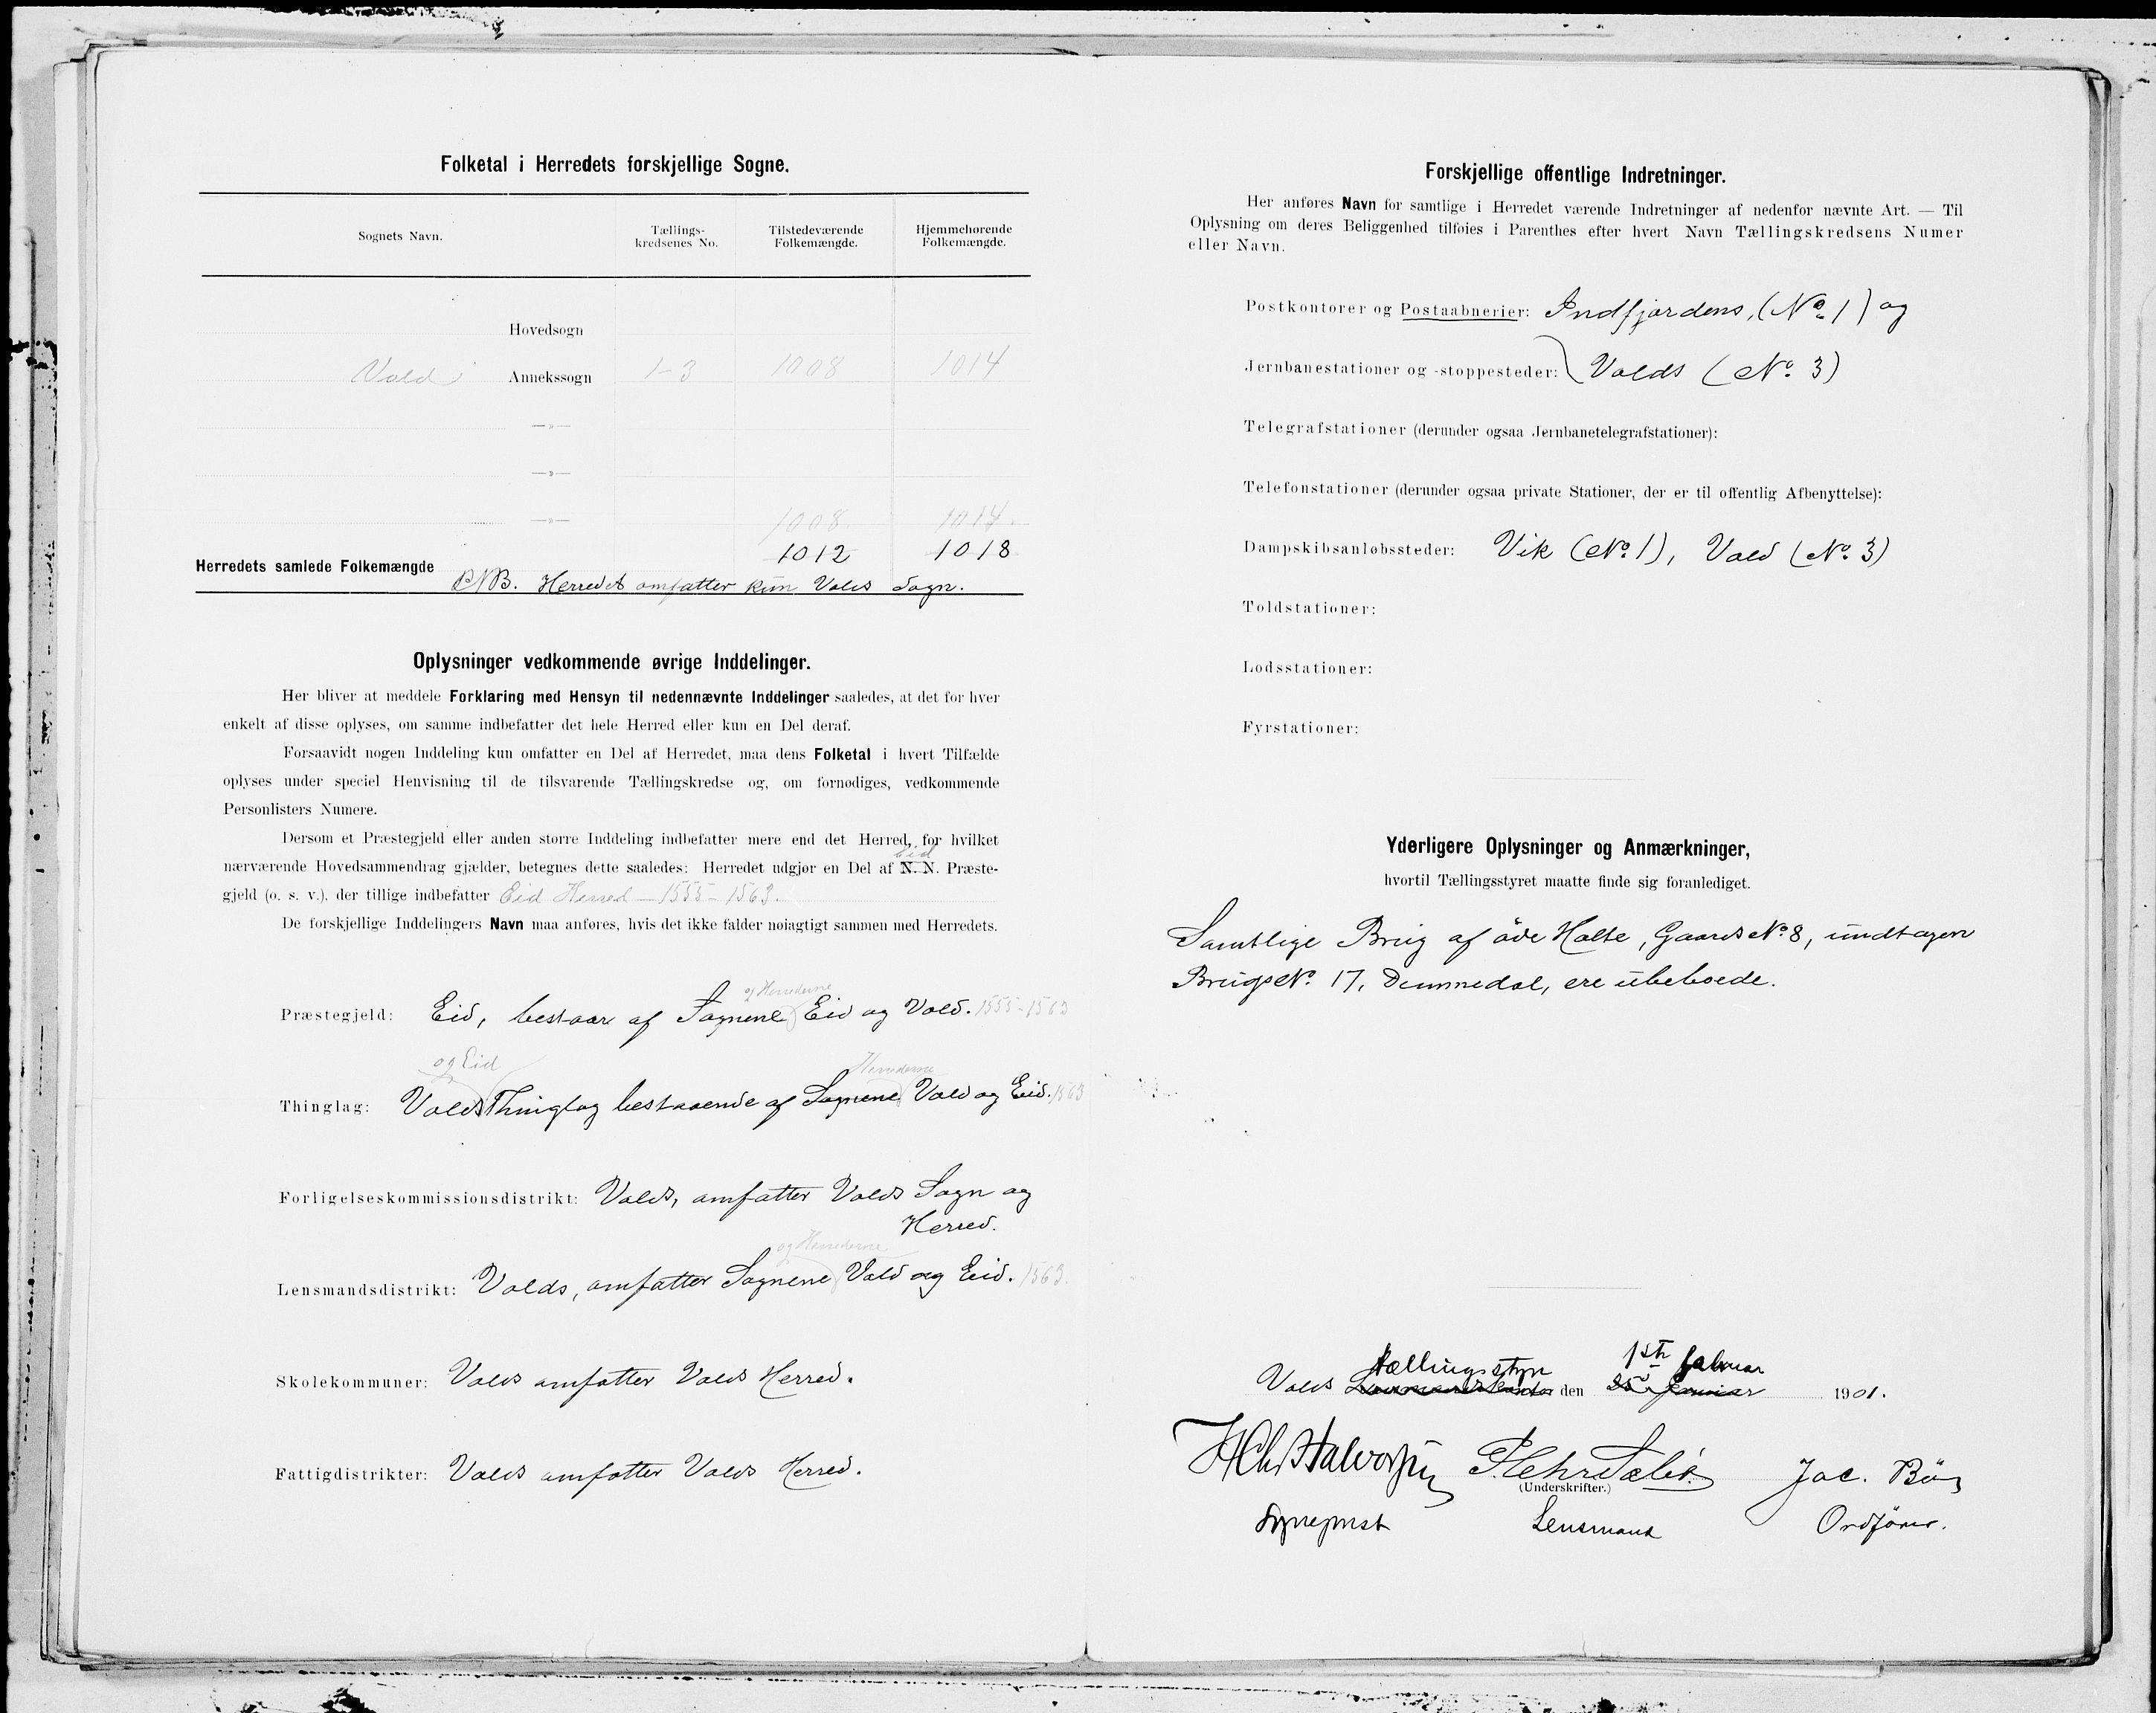 Folketal i Herredets forskjellige Sogne.
Sognets Navn. Tællings-kredsenes No. Tilstedeværende Folkemængde. Hjemmehørende Folkemængde.
Hovedsogn
Vold Annekssogn 1-3 1008 1014
—»—
—»—
—»— 1008. 1014.
Herredets samlede Folkemængde 1012 1018
NB. Herredet omfatter kun Volds Sogn.
Oplysninger vedkommende øvrige Inddelinger.
Her bliver at meddele Forklaring med Hensyn til nedennævnte Inddelinger saaledes, at det for hver
enkelt af disse oplyses, om samme indbefatter det hele Herred eller kun en Del deraf.
Forsaavidt nogen Inddeling kun omfatter en Del af Herredet, maa dens Folketal i hvert Tilfælde
oplyses under speciel Henvisning til de tilsvarende Tællingskredse og, om fornødiges, vedkommende
Personlisters Numere.
Dersom et Præstegjeld eller anden større Inddeling indbefatter mere end det Herred, for hvilket
Eid
nærværende Hovedsammendrag gjælder, betegnes dette saaledes: Herredet udgjør en Del af N. N. Præste-
gjeld (o. s. v.), der tillige indbefatter Eid Herred — 1555 - 1563.
De forskjellige Inddelingers Navn maa anføres, hvis det ikke falder nøiagtigt sammen med Herredets.
og Herrederne
Præstegjeld: Eid, bestaar af Sognene Eid og Vold. 1555-1563
og Eid Herrederne
Thinglag: Volds Thinglag bestaaende af Sognene Vold og Eid. 1563
Forligelseskommissionsdistrikt: Volds, omfatter Volds Sogn og
Herred.
og Herrederne
Lensmandsdistrikt: Volds, omfatter Sognene Vold og Eid. 1563.
Skolekommuner: Volds omfatter Volds Herred.
Fattigdistrikter: Volds omfatter Volds Herred.
Forskjellige offentlige Indretninger.
Her anføres Navn for samtlige i Herredet værende Indretninger af nedenfor nævnte Art. — Til
Oplysning om deres Beliggenhed tilføies i Parenthes efter hvert Navn Tællingskredsens Numer
eller Navn.
Postkontorer og Postaabnerier: Indfjordens, (No. 1) og
Jernbanestationer og -stoppesteder: Volds (No. 3)
Telegrafstationer (derunder ogsaa Jernbanetelegrafstationer):
Telefonstationer (derunder ogsaa private Stationer, der er til offentlig Afbenyttelse):
Dampskibsanløbssteder: Vik (No. 1), Vold (No. 3)
Toldstationer:
Lodsstationer:
Fyrstationer:
Yderligere Oplysninger og Anmærkninger,
hvortil Tællingsstyret maatte finde sig foranlediget.
Samtlige Brug af øde Holte, Gaards No. 8, undtagen
Brugs No. 17, Dummedal, ere ubeboede.
Tællingsstyre 1ste februar
Volds Lensmandskontor den 25de Januar 1901.
H Chr Halvorsen P. Chr Sæbø. Jac. Bø
(Underskrifter.)
Sogneprest Lensmand Ordfører.